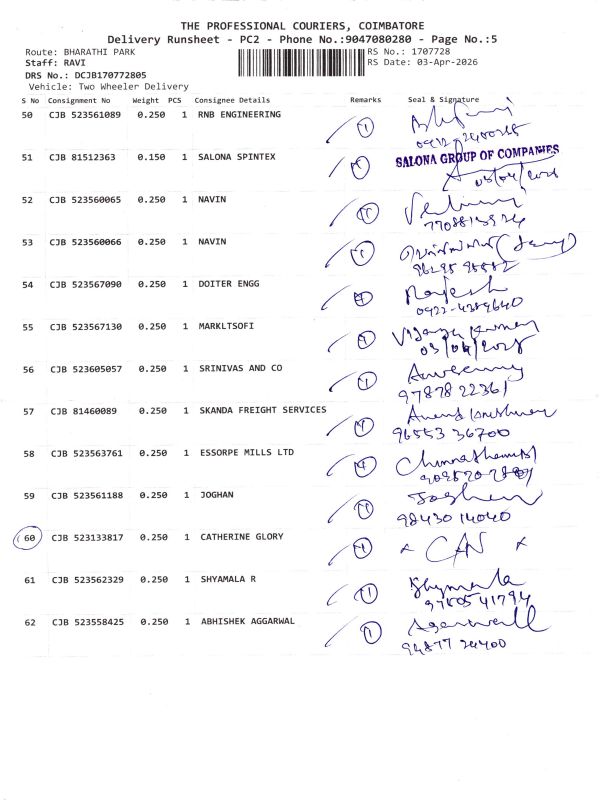 THE PROFESSIONAL COURIERS, COIMBATORE
Delivery Runsheet - PC2 - Phone No.:9047080280 - Page No.:5
Route: BHARATHI PARK
Staff: RAVI
DRS No.: DCJB170772805
Vehicle: Two Wheeler Delivery
RS No.: 1707728
RS Date: 03-Apr-2026
S No Consignment No Weight PCS Consignee Details Remarks Seal & Signature
50 CJB 523561089 0.250 1 RNB ENGINEERING 1
51 CJB 81512363 0.150 1 SALONA SPINTEX SALONA GROUP OF COMPANIES
52 CJB 523560065 0.250 1 NAVIN
53 CJB 523560066 0.250 1 NAVIN 1
96298 98882
54 CJB 523567090 0.250 1 DOITER ENGG Rajesh
0422-4389640
55 CJB 523567130 0.250 1 MARKLTSOFI Vijaya Kumar
56 CJB 523605057 0.250 1 SRINIVAS AND CO 1
97878 22361
57 CJB 81460089 0.250 1 SKANDA FREIGHT SERVICES
96553 36700
58 CJB 523563761 0.250 1 ESSORPE MILLS LTD
59 CJB 523561188 0.250 1 JOGHAN Joghen
98430 14040
60 CJB 523133817 0.250 1 CATHERINE GLORY 1 x CAN x
61 CJB 523562329 0.250 1 SHYAMALA R 1 Shymala
97505 41794
62 CJB 523558425 0.250 1 ABHISHEK AGGARWAL 1 Agarwall
94877 24400